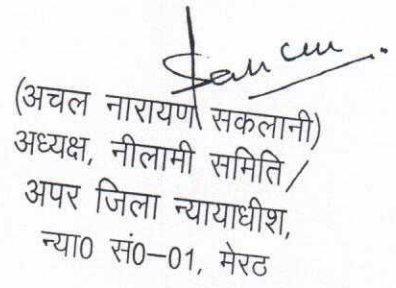 (अचल नारायण सकलानी)
अध्यक्ष, नीलामी समिति /
अपर जिला न्यायाधीश,
न्या0 सं0–01, मेरठ